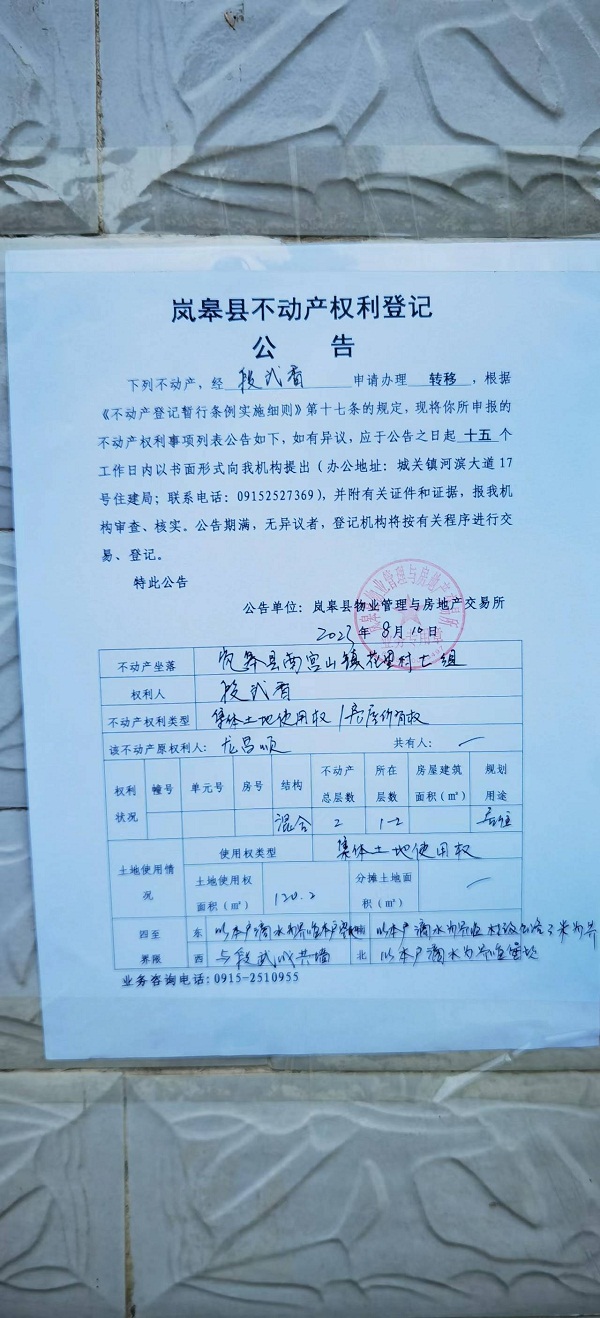 岚皋县不动产权利登记
公 告
下列不动产，经 段武香 申请办理 转移 ，根据
《不动产登记暂行条例实施细则》第十七条的规定，现将你所申报的
不动产权利事项列表公告如下，如有异议，应于公告之日起 十五 个
工作日内以书面形式向我机构提出（办公地址：城关镇河滨大道17
号住建局；联系电话：09152527369），并附有关证件和证据，报我机
构审查、核实。公告期满，无异议者，登记机构将按有关程序进行交
易、登记。
特此公告
公告单位：岚皋县物业管理与房地产交易所
2023年8月10日
不动产坐落 岚皋县南宫山镇花里村七组
权利人 段武香
不动产权利类型 集体土地使用权/房屋所有权
该不动产原权利人：龙昌顺 共有人：—
权利状况 幢号 单元号 房号 结构 不动产总层数 所在层数 房屋建筑面积（㎡） 规划用途
混合 2 1-2 居住
土地使用情况 使用权类型 集体土地使用权
土地使用权面积（㎡） 120.2 分摊土地面积（㎡） —
四至界限 东 以本户滴水为界 以本户滴水为界 3米为界
西 与段武成共墙 北 以本户滴水为界
业务咨询电话：0915-2510955